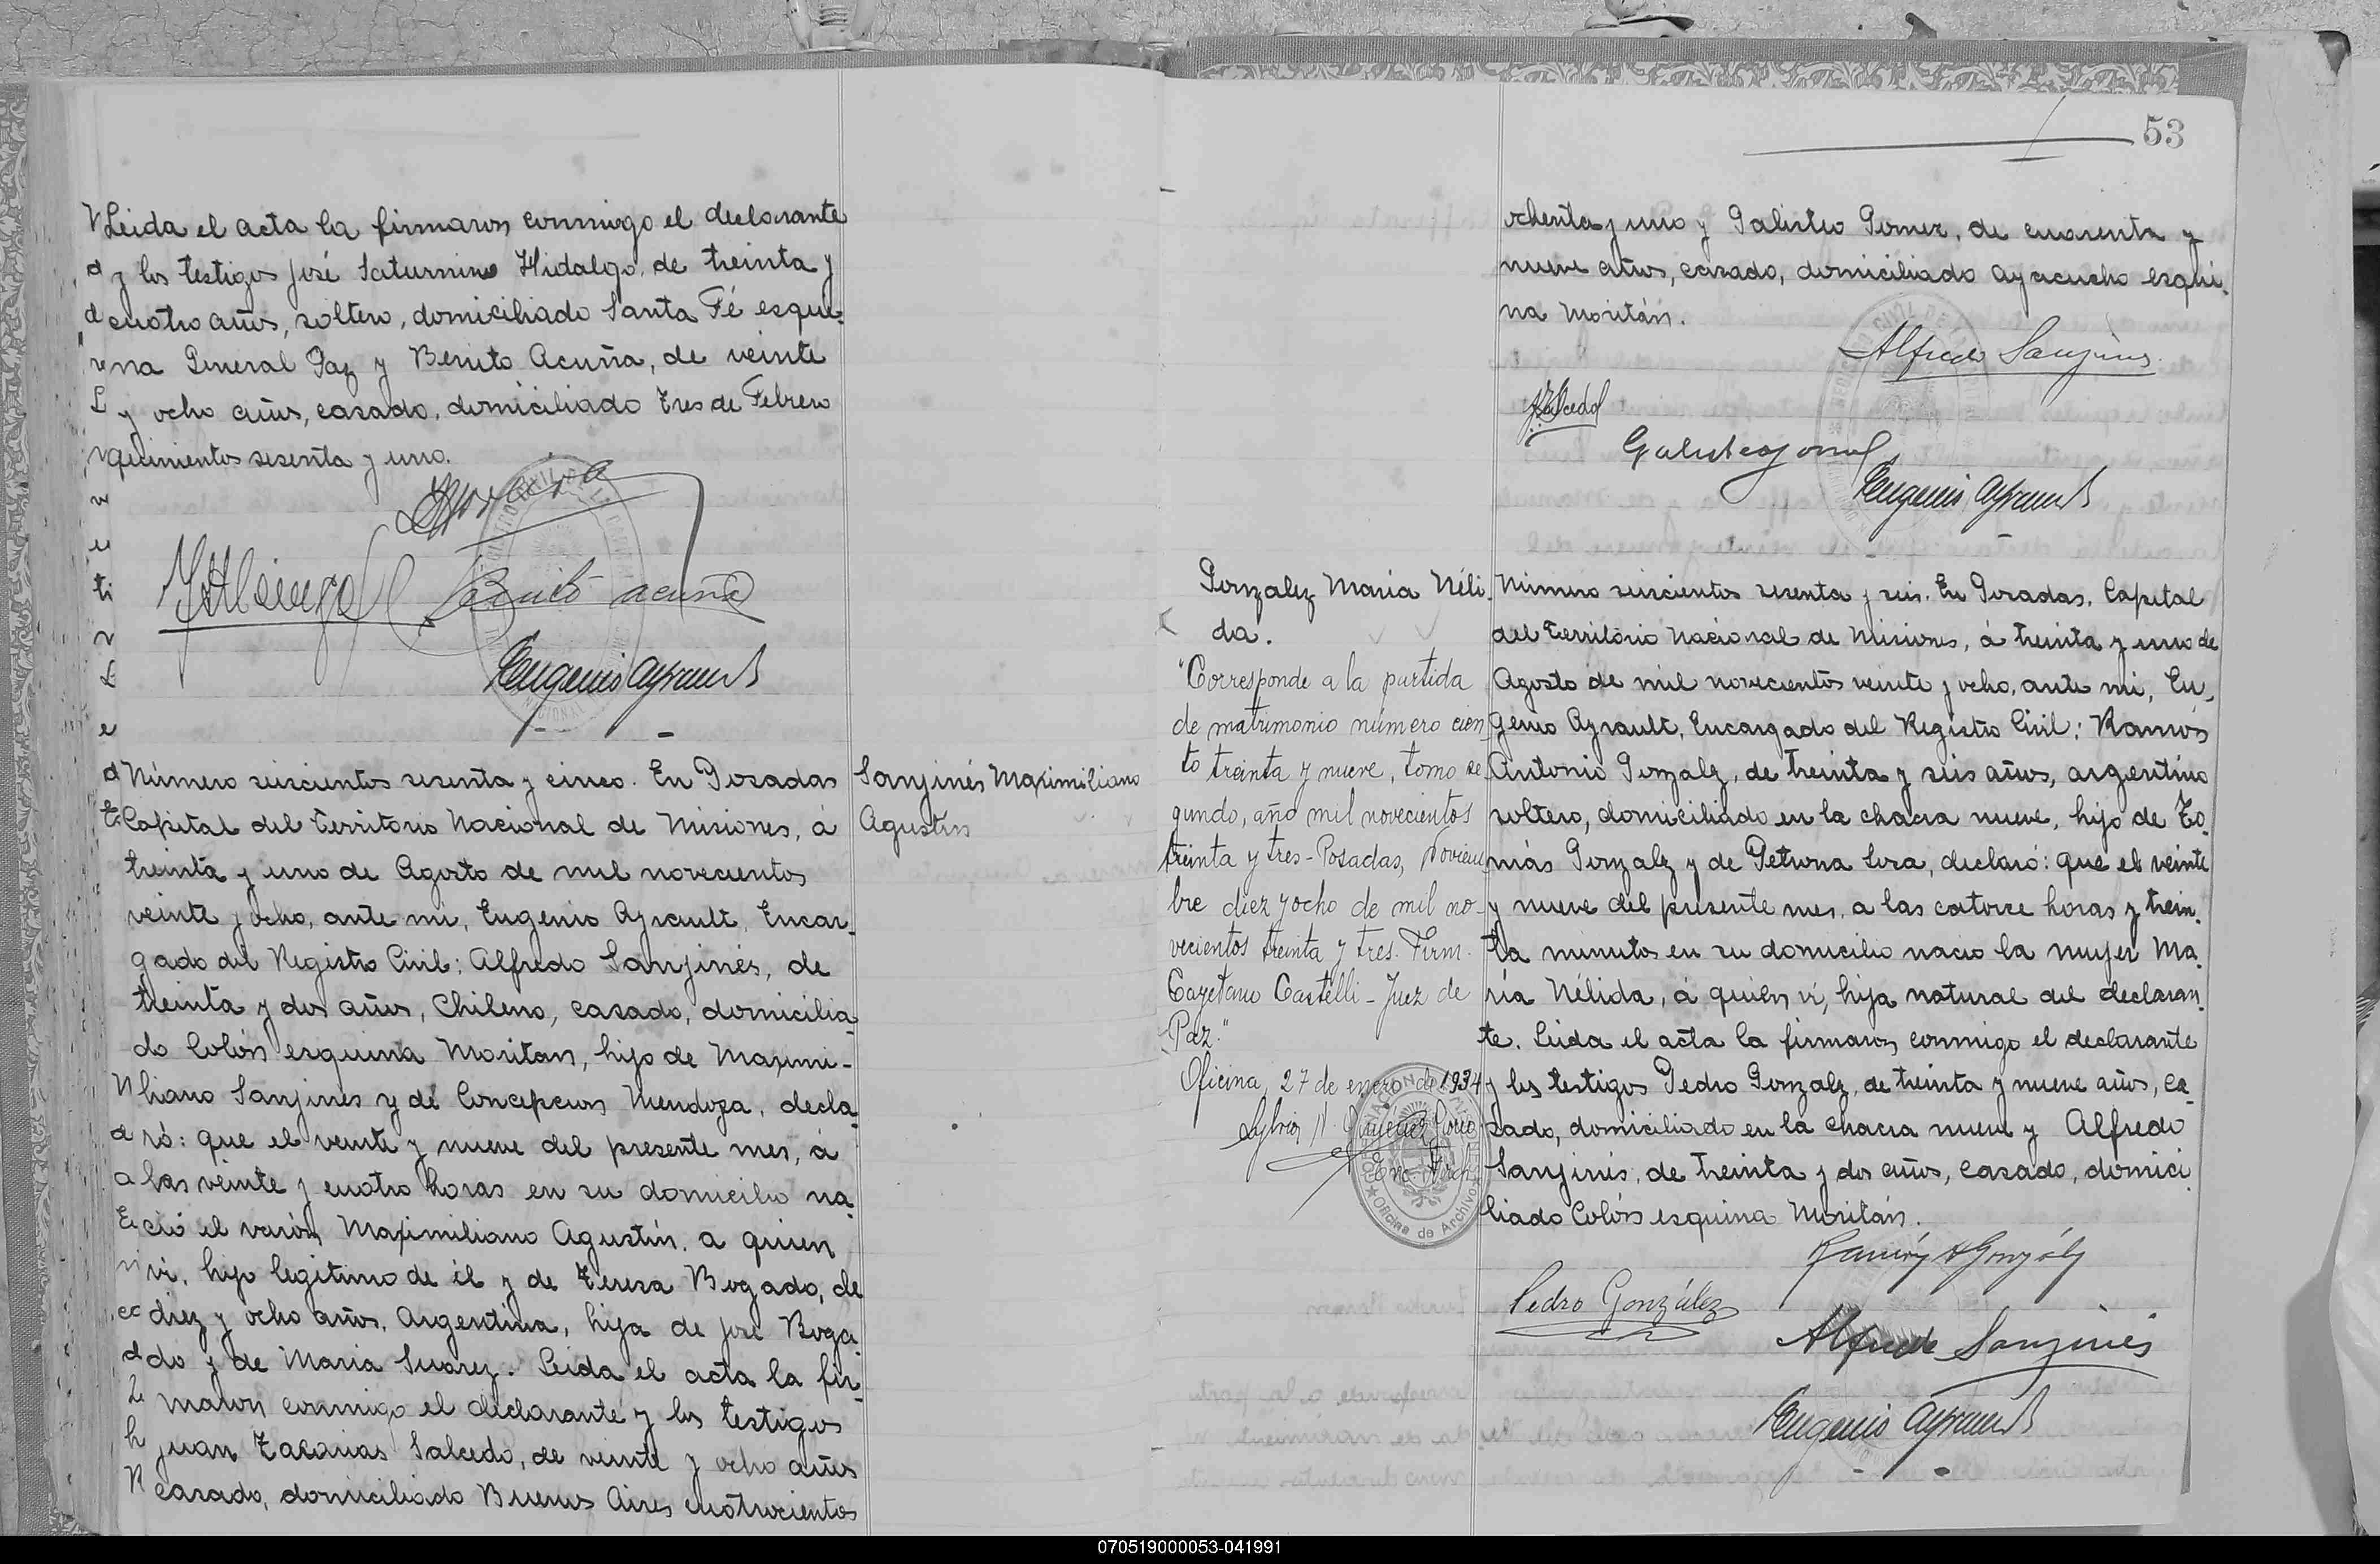 Leida el acta la firmaron conmigo el declarante
y los testigos José Saturnino Hidalgo, de treinta y
cuatro años, soltero, domiciliado Santa Fé esqui-
na General Paz y Benito Acuña, de veinte
y ocho años, casado, domiciliado Tres de Febrero
quinientos sesenta y uno.
Benito acuña
Eugenio Ayrault
Número seiscientos sesenta y cinco. En Posadas
Capital del Territorio Nacional de Misiones, á
treinta y uno de Agosto de mil novecientos
veinte y ocho, ante mi, Eugenio Ayrault, Encar-
gado del Registro Civil: Alfredo Sanjinés, de
treinta y dos años, Chileno, casado, domicilia-
do Colón esquina Moritan, hijo de Maximi-
liano Sanjines y de Concepcion Mendoza, decla-
ró: que el veinte y nueve del presente mes, á
las veinte y cuatro horas en su domicilio na-
ció el varón Maximiliano Agustín, a quien
vi, hijo legitimo de él y de Teresa Bogado, de
diez y ocho años, Argentina, hija de José Boga-
do y de Maria Suarez. Leida el acta la fir-
maron conmigo el declarante y los testigos
Juan Zacarias Salcedo, de veinte y ocho años
casado, domiciliado Buenos Aires cuatrocientos
Sanjinés Maximiliano
Agustin
53
ochenta y uno y Galisteo Gomez, de cuarenta y
nueve años, casado, domiciliado Ayacucho esqui-
na Moritán.
Alfredo Sanjines
JZSalcedo
Galisteo Gomez
Eugenio Ayrault
Gonzalez Maria Néli-
da.
"Corresponde a la partida
de matrimonio número cien-
to treinta y nueve, tomo se-
gundo, año mil novecientos
treinta y tres-Posadas, Noviem-
bre diez y ocho de mil no-
vecientos treinta y tres. Firm.
Cayetano Castelli - Juez de
Paz."
Oficina, 27 de enero de 1934
Número seiscientos sesenta y seis. En Posadas, Capital
del Territorio Nacional de Misiones, á treinta y uno de
Agosto de mil novecientos veinte y ocho, ante mi, Eu-
genio Ayrault, Encargado del Registro Civil: Ramón
Antonio Gonzalez, de treinta y seis años, argentino
soltero, domiciliado en la chacra nueve, hijo de To-
más Gonzalez y de Petrona Sosa, declaró: que el veinte
y nueve del presente mes, a las catorce horas y trein-
ta minutos en su domicilio nacio la mujer Ma-
ría Nélida, á quien ví, hija natural del declaran-
te. Leida el acta la firmaron conmigo el declarante
y los testigos Pedro Gonzalez, de treinta y nueve años, ca-
sado, domiciliado en la chacra nueve y Alfredo
Sanjinés, de treinta y dos años, casado, domici-
liado Colón esquina Moritán.
Ramón A González
Pedro González
Alfredo Sanjinés
Eugenio Ayrault
070519000053-041991